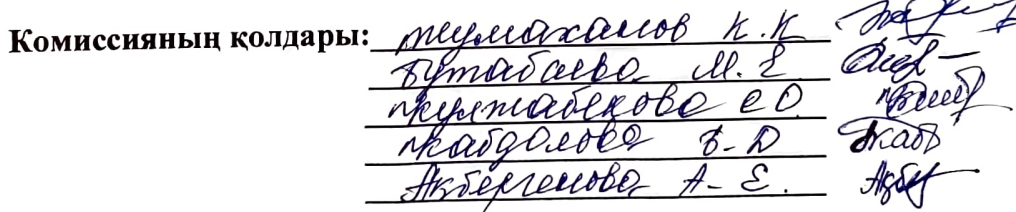 Комиссияның қолдары: Жумаханов К.К
Бутабаева М.Е.
Жулжабекова С О.
Жабдолова Б-Д
Ақбергенова А-Е.